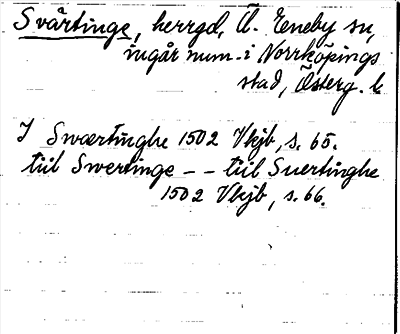 Svärtinge, herrgd, Ö. Eneby sn,
ingår num. i Norrköpings
stad, Österg. l.
I Swærtinghe 1502 Vkjb, s. 65.
tiil Swertinge – – tiil Suertinghe
1502 Vkjb, s. 66.